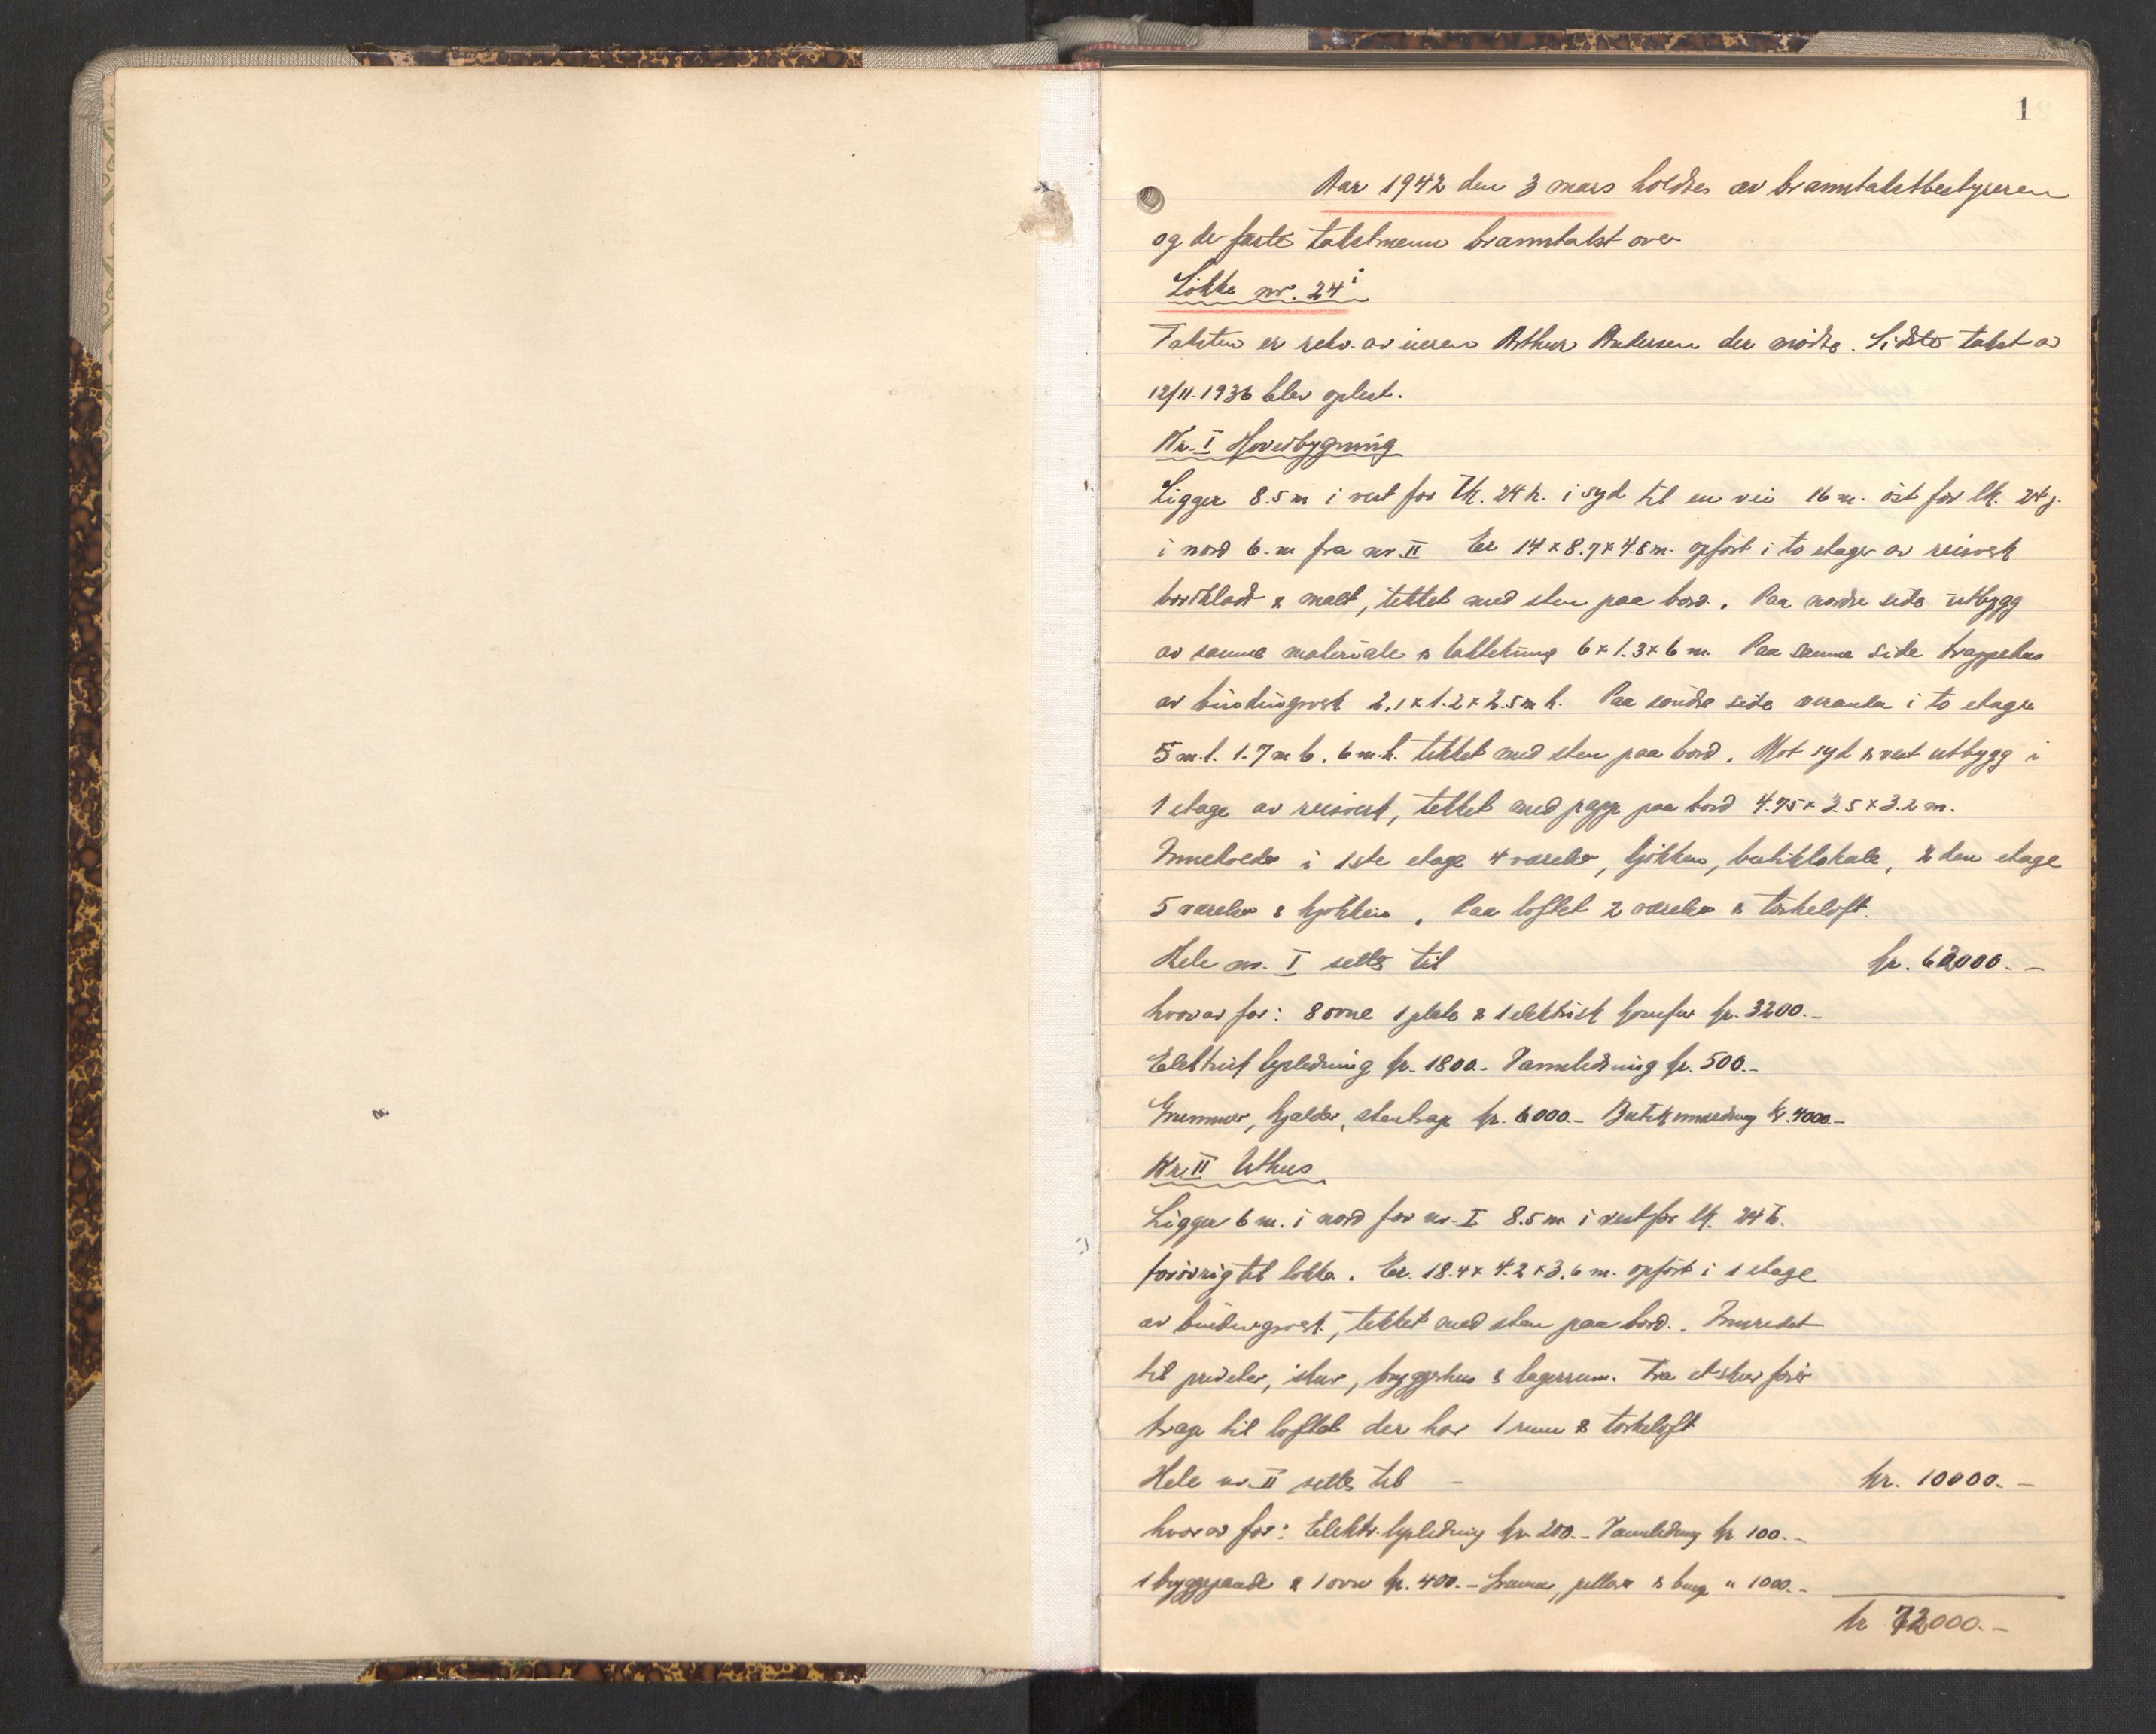 1
Aar 1942 den 3 mars holdtes av branntakstbestyreren
og de faste takstmenn branntakst over
Lökke nr. 24i
Taksten er rekv. av eieren Arthur Andersen der mödte. Sidste takst av
12/11. 1936 blev oplest.
Nr. I Hovedbygning
Ligger 8.5 m i vest for lk. 24 h. i syd til en vei 16 m. öst for lk. 24 j.
i nord 6. m fra nr. II Er 14 x 8.7 x 4.8 m. opfört i to etager av reisverk
bordklædt & malt, tekket med sten paa bord. Paa nordre side utbygg
av samme materiale & taktekking 6 x 1.3 x 6 m. Paa samme side trappehus
av bindingverk 2.1 x 1.2 x 2.5 m h. Paa söndre side veranda i to etager
5 m. l. 1.7 m b. 6 m. h. tekket med sten paa bord. Mot syd & vest utbygg i
1 etage av reisverk, tekket med papp paa bord 4.75 x 3.5 x 3.2 m.
Inneholder i 1ste etage 4 værelser, kjökken, butiklokale, 2 den etage
5 værelser & kjökken. Paa loftet 2 værelser & törkeloft.
Hele nr. I settes til kr. 62000.-
hvorav for: 8 ovne 1 plate & 1 elektrisk komfur kr. 3200.-
Elektrisk lysledning kr. 1800.- Vannledning kr. 500.-
Grunnmur, kjælder, stentrap kr. 6000.- Butikinnredning kr. 4000.-
Nr II Uthus
Ligger 6 m. i nord for nr. I 8.5 m i vest for lk. 24 h.
forövrig til lökka. Er. 18.4 x 4.2 x 3.6 m. opfört i 1 etage
av bindingverk, tekket med sten paa bord. Innredet
til priveter, skur, bryggerhus & lagerrum. Fra et skur förer
trap til loftet der har 1 rum & törkeloft
Hele nr. II settes til - kr. 10000.-
hvorav for: Elektr. lysledning kr 200.- Vannledning kr 100.-
1 bryggepande & 1 ovn kr. 400.- Grunnmur, pillarer & " 1000.-
kr 72000.-